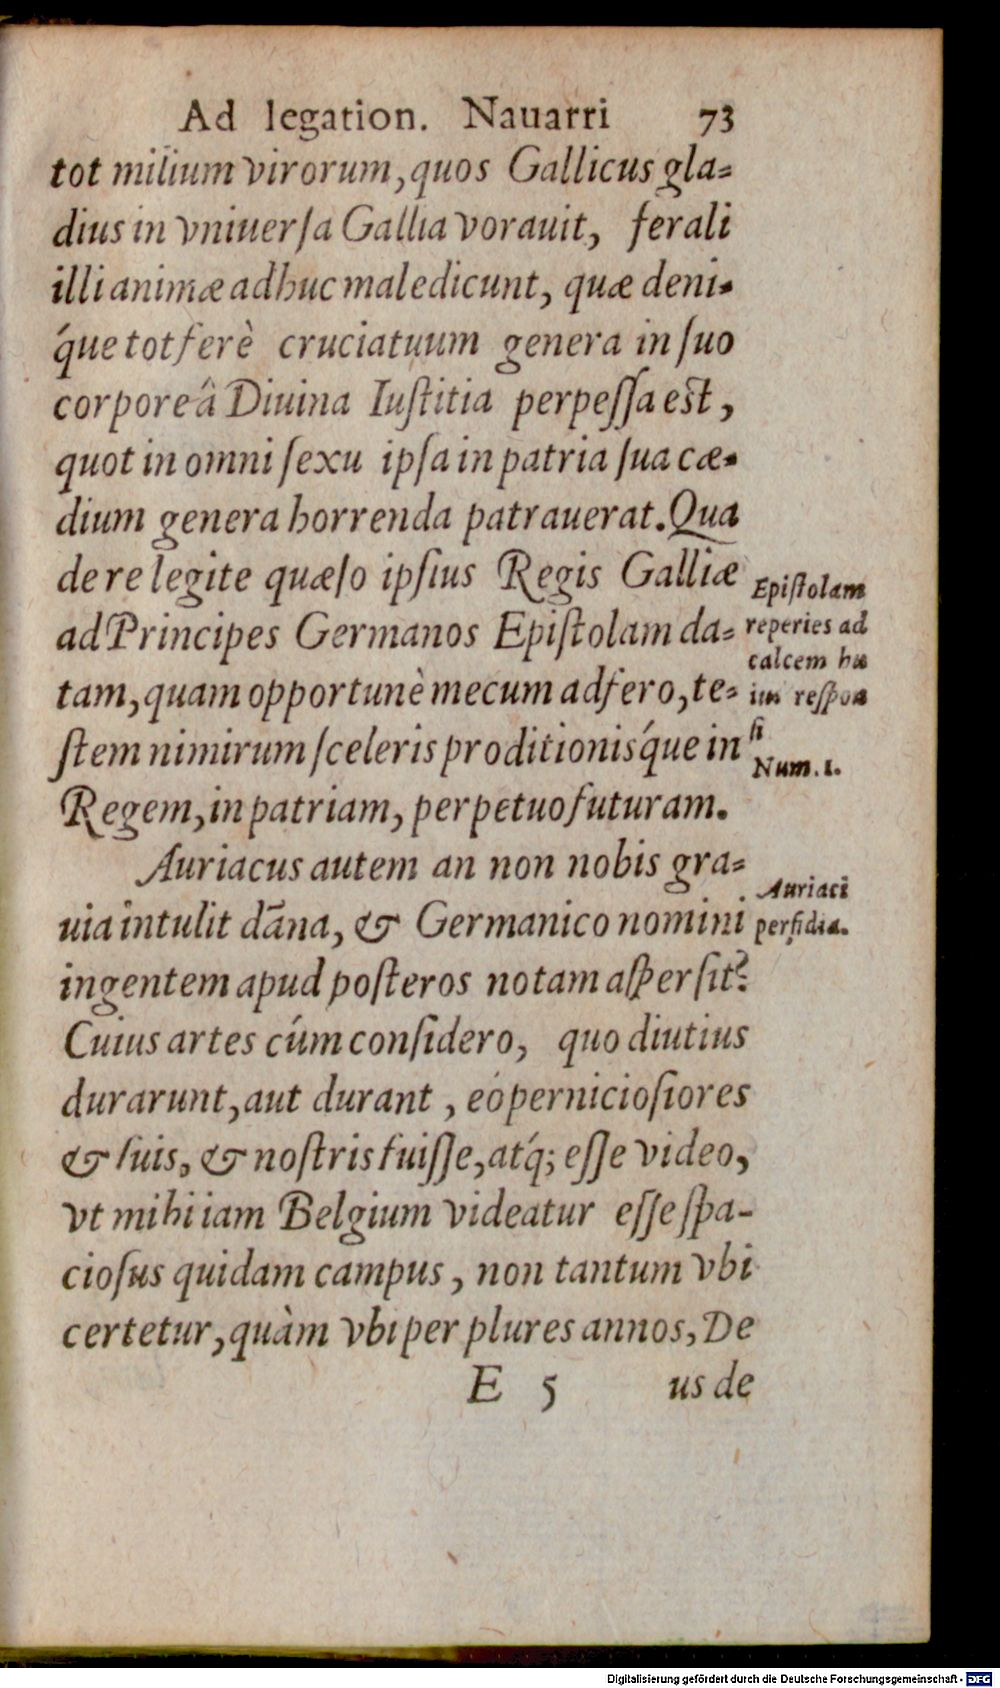 Ad legation. Nauarri 73
tot milium virorum, quos Gallicus gla=
dius in vniuerſa Gallia vorauit, ferali
illi animæ adhuc maledicunt, quæ deni-
q́ue tot ferè cruciatuum genera in ſuo
corpore â Diuina Iuſtitia perpeſſa est,
quot in omni ſexu ipſa in patria ſua cæ-
dium genera horrenda patrauerat. Qua
de re legite quæſo ipſius Regis Galliæ
ad Principes Germanos Epiſtolam da=
tam, quam opportunè mecum adfero, te=
ſtem nimirum ſceleris proditionisq́ue in
Regem, in patriam, perpetuo futuram.
Epiſtolam
reperies ad
calcem hu
ius reſpon
ſi
Num. 1.
Auriacus autem an non nobis gra=
uia intulit dãna, & Germanico nomini
ingentem apud poſteros notam aſperſit?
Cuius artes cúm conſidero, quo diutius
durarunt, aut durant, eó pernicioſiores
& ſuis, & noſtris fuiſſe, atq́; eſſe video,
vt mihi iam Belgium videatur eſſe ſpa-
cioſus quidam campus, non tantum vbi
certetur, quàm vbi per plures annos, De
Auriaci
perfidia.
E 5 us de
Digitalisierung gefördert durch die Deutsche Forschungsgemeinschaft - DFG